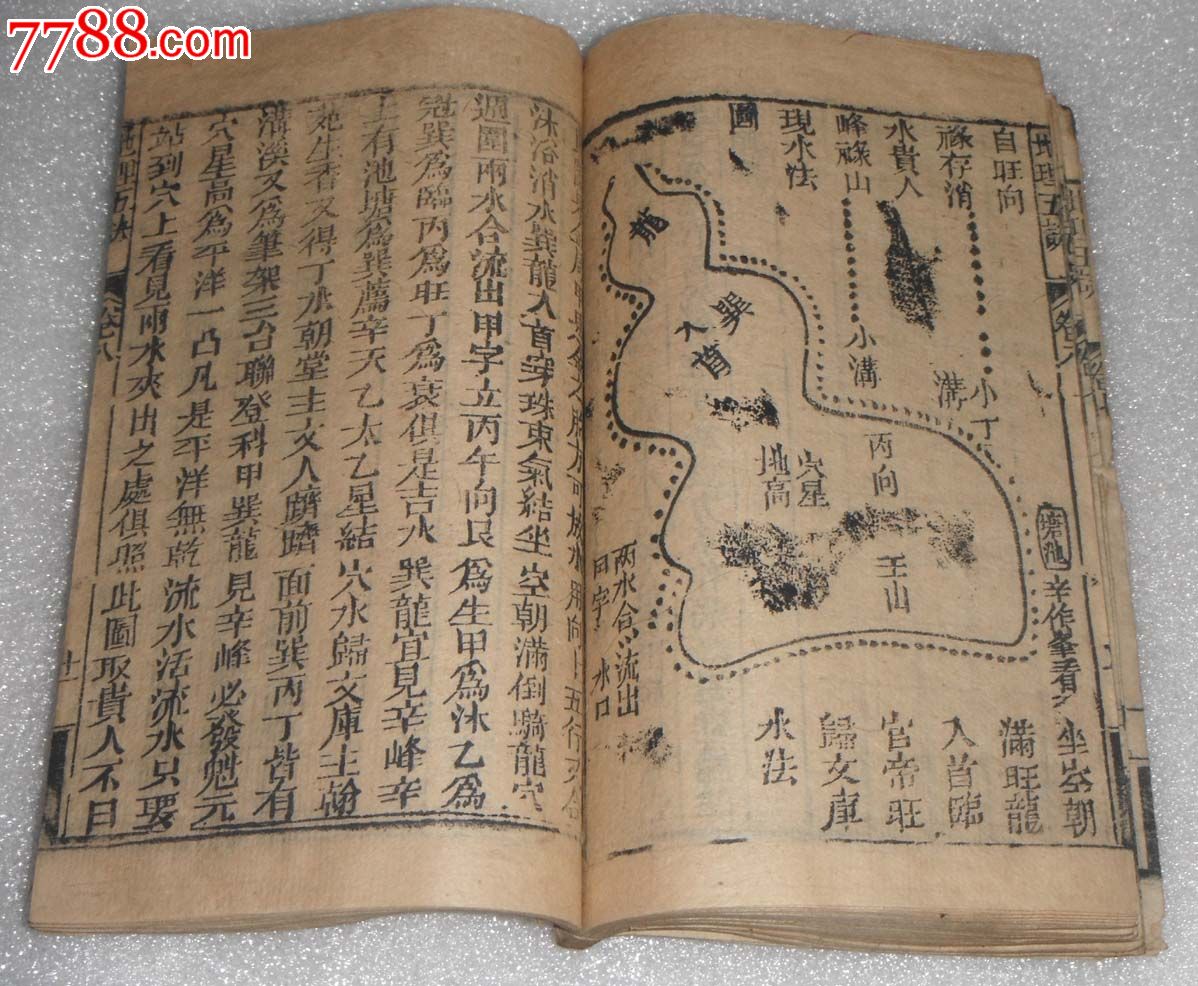 7788.com
地理五訣
卷八
自旺向
祿存消
水貴人
峰祿山
現水法
圖
小溝
小丁
溝
龍
巽
入首
穴星
地高
丙向
壬山
塘池
辛作峯看
兩水合流出
水口
坐空朝
滿旺龍
入首臨
官帝旺
歸文庫
水法
沐浴消水巽龍入首穿珠東氣結坐空朝滿倒騎龍穴
週圍兩水合流出甲字立丙午向艮爲生甲爲沐乙爲
冠巽爲臨丙爲旺丁爲衰俱是吉水巽龍宜見辛峰辛
上有池塘爲巽薦辛天乙太乙星結穴水歸文庫主翰
苑生香又得丁水朝堂主文人躋躋面前巽丙丁皆有
溝溪又爲筆架三台聯登科甲巽龍見辛峰必發魁元
穴星高爲平洋一凸凡是平洋無乾流水活流水只要
站到穴上看見兩水夾出之處俱照此圖取貴人不曰
地理五訣
卷八